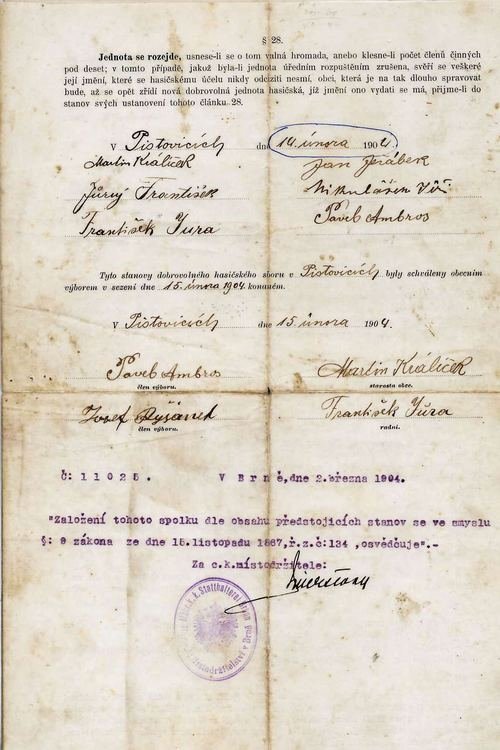 § 28.
Jednota se rozejde, usnese-li se o tom valná hromada, anebo klesne-li počet členů činných
pod deset; v tomto případě, jakož byla-li jednota úředním rozpuštěním zrušena, svěří se veškeré
její jmění, které se hasičskému účelu nikdy odciziti nesmí, obci, která je na tak dlouho spravovat
bude, až se opět zřídí nová dobrovolná jednota hasičská, jíž jmění ono vydati se má, přijme-li do
stanov svých ustanovení tohoto článku 28.
V Pistovicích dne 14. února 1904.
Martin Králíček Jan Jeřábek
Jurný František Mikulášek
František Jura Pavel Ambros
Tyto stanovy dobrovolného hasičského sboru v Pistovicích byly schváleny obecním
výborem v sezení dne 15. února 1904 konaném.
V Pistovicích dne 15. února 1904.
Pavel Ambros Martin Králíček
člen výboru. starosta obce.
Josef Ryšánek František Jura
člen výboru. radní.
Č: 11025. V Brně, dne 2. března 1904.
"Založení tohoto spolku dle obsahu předstojících stanov se ve smyslu
§: 9 zákona ze dne 15. listopadu 1867, ř. z. č: 134, osvědčuje".-
Za c.k. místodržitele:
k.k. Statthalterei Brünn
místodržitelství v Brně